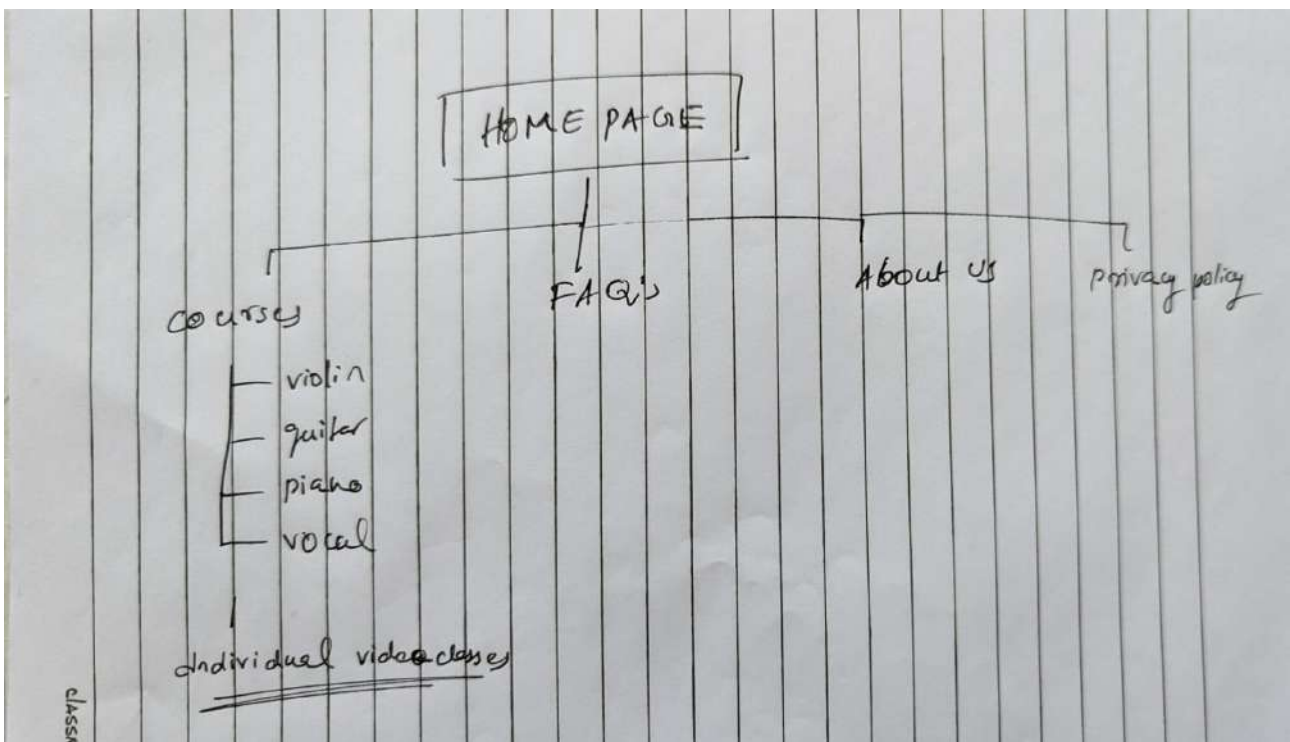 HOME PAGE
courses
FAQ's
About us
privacy policy
violin
guitar
piano
vocal
Individual video classes